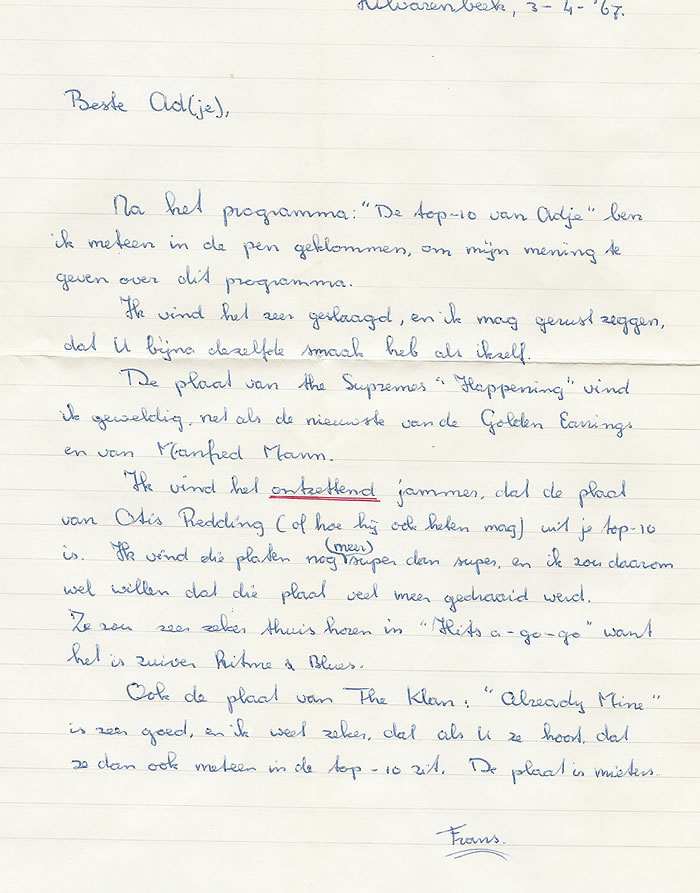 Hilvarenbeek, 3-4-'67.
Beste Ad(je),
Na het programma: "De top-10 van Adje" ben
ik meteen in de pen geklommen, om mijn mening te
geven over dit programma.
Ik vind het zeer geslaagd, en ik mag gerust zeggen,
dat U bijna dezelfde smaak heb als ikzelf.
De plaat van the Supremes "Happening" vind
ik geweldig, net als de nieuwste van de Golden Earrings
en van Manfred Mann.
Ik vind het ontzettend jammer, dat de plaat
van Otis Redding (of hoe hij ook heten mag) uit je top-10
is. Ik vind die platen nog (meer) super dan super, en ik zou daarom
wel willen dat die plaat veel meer gedraaid werd.
Ze zou zeer zeker thuis horen in "Hits a-go-go" want
het is zuiver Ritme & Blues.
Ook de plaat van The Klan: "Already Mine"
is zeer goed, en ik weet zeker, dat als U ze hoort, dat
ze dan ook meteen in de top-10 zit. De plaat is mieters.
Frans.